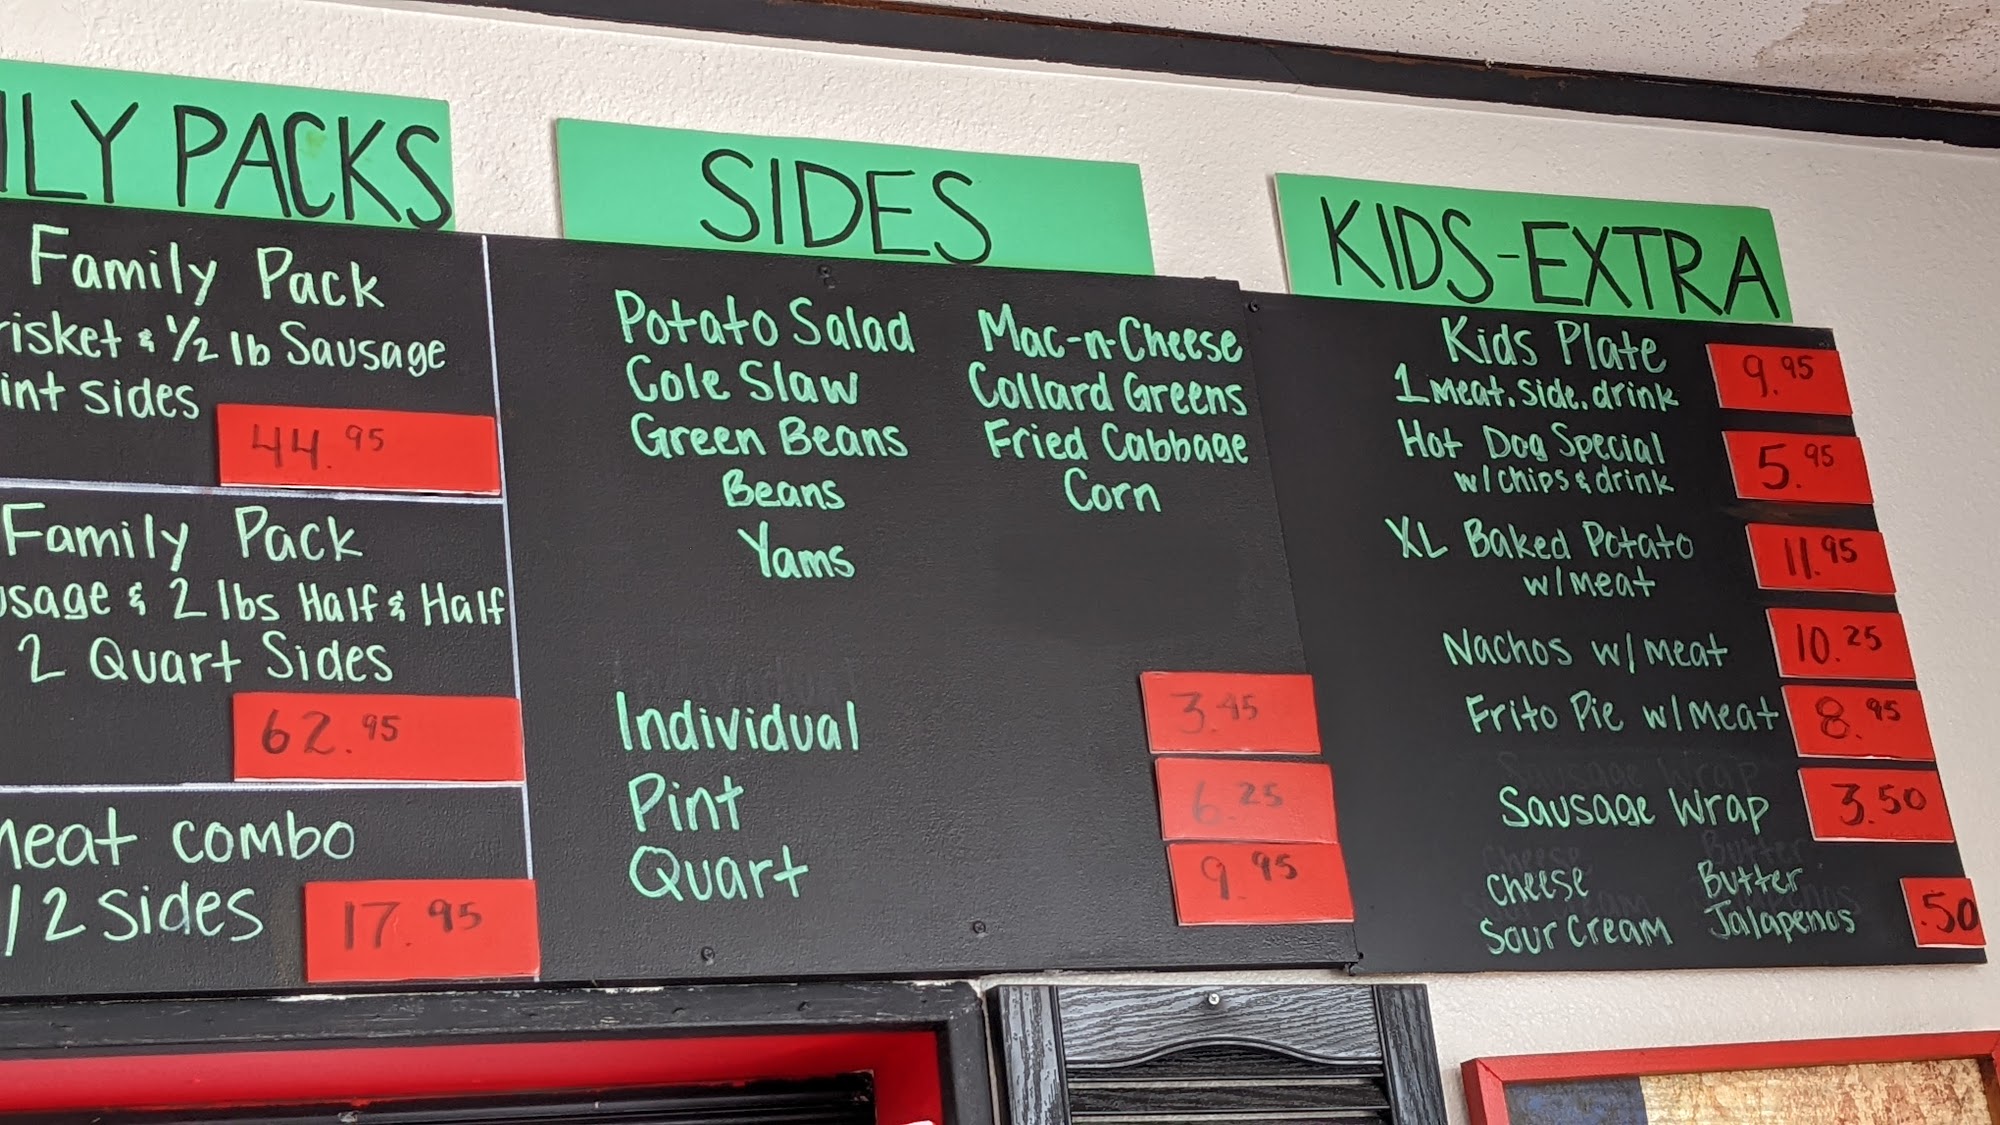 ILY PACKS
Family Pack
risket & 1/2 lb Sausage
int sides
44.95
Family Pack
usage & 2 lbs Half & Half
2 Quart Sides
62.95
Meat combo
/2 sides
17.95
SIDES
Potato Salad Mac-n-Cheese
Cole Slaw Collard Greens
Green Beans Fried Cabbage
Beans Corn
Yams
Individual 3.45
Pint 6.25
Quart 9.95
KIDS-EXTRA
Kids Plate 9.95
1 Meat. Side. drink
Hot Dog Special 5.95
w/chips & drink
XL Baked Potato 11.95
w/meat
Nachos w/meat 10.25
Frito Pie w/meat 8.95
Sausage Wrap 3.50
Cheese Butter .50
Sour Cream Jalapenos